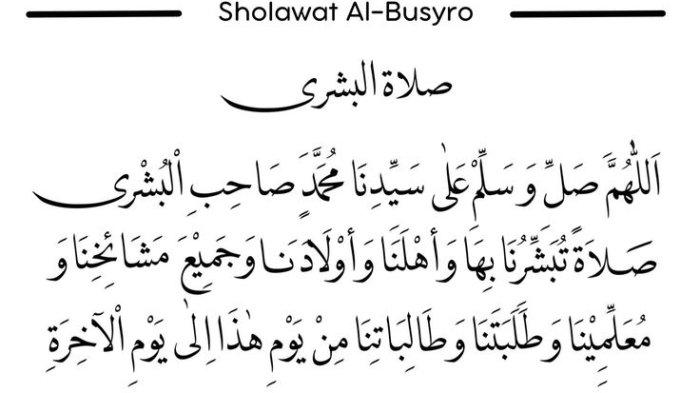 Sholawat Al-Busyro
صلاة البشرى
اَللّٰهُمَّ صَلِّ وَ سَلِّمْ عَلٰى سَيِّدِنَا مُحَمَّدٍ صَاحِبِ الْبُشْرٰى
صَلَاةً تُبَشِّرُنَا بِهَا وَأَهْلَنَا وَأَوْلَادَنَا وَجَمِيْعَ مَشَائِخِنَا وَ
مُعَلِّمِيْنَا وَطَلَبَتَنَا وَطَالِبَاتِنَا مِنْ يَوْمِ هٰذَا اِلٰى يَوْمِ الْآخِرَةِ